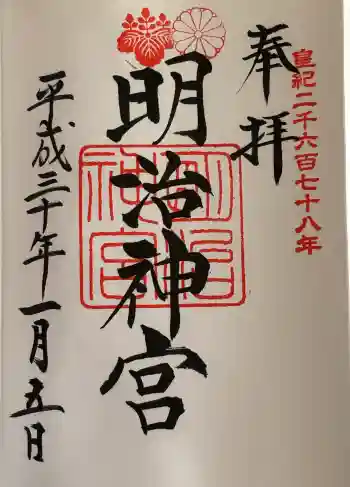 皇紀二千六百七十八年
奉拝
明治神宮
明治神宮
平成三十年一月五日